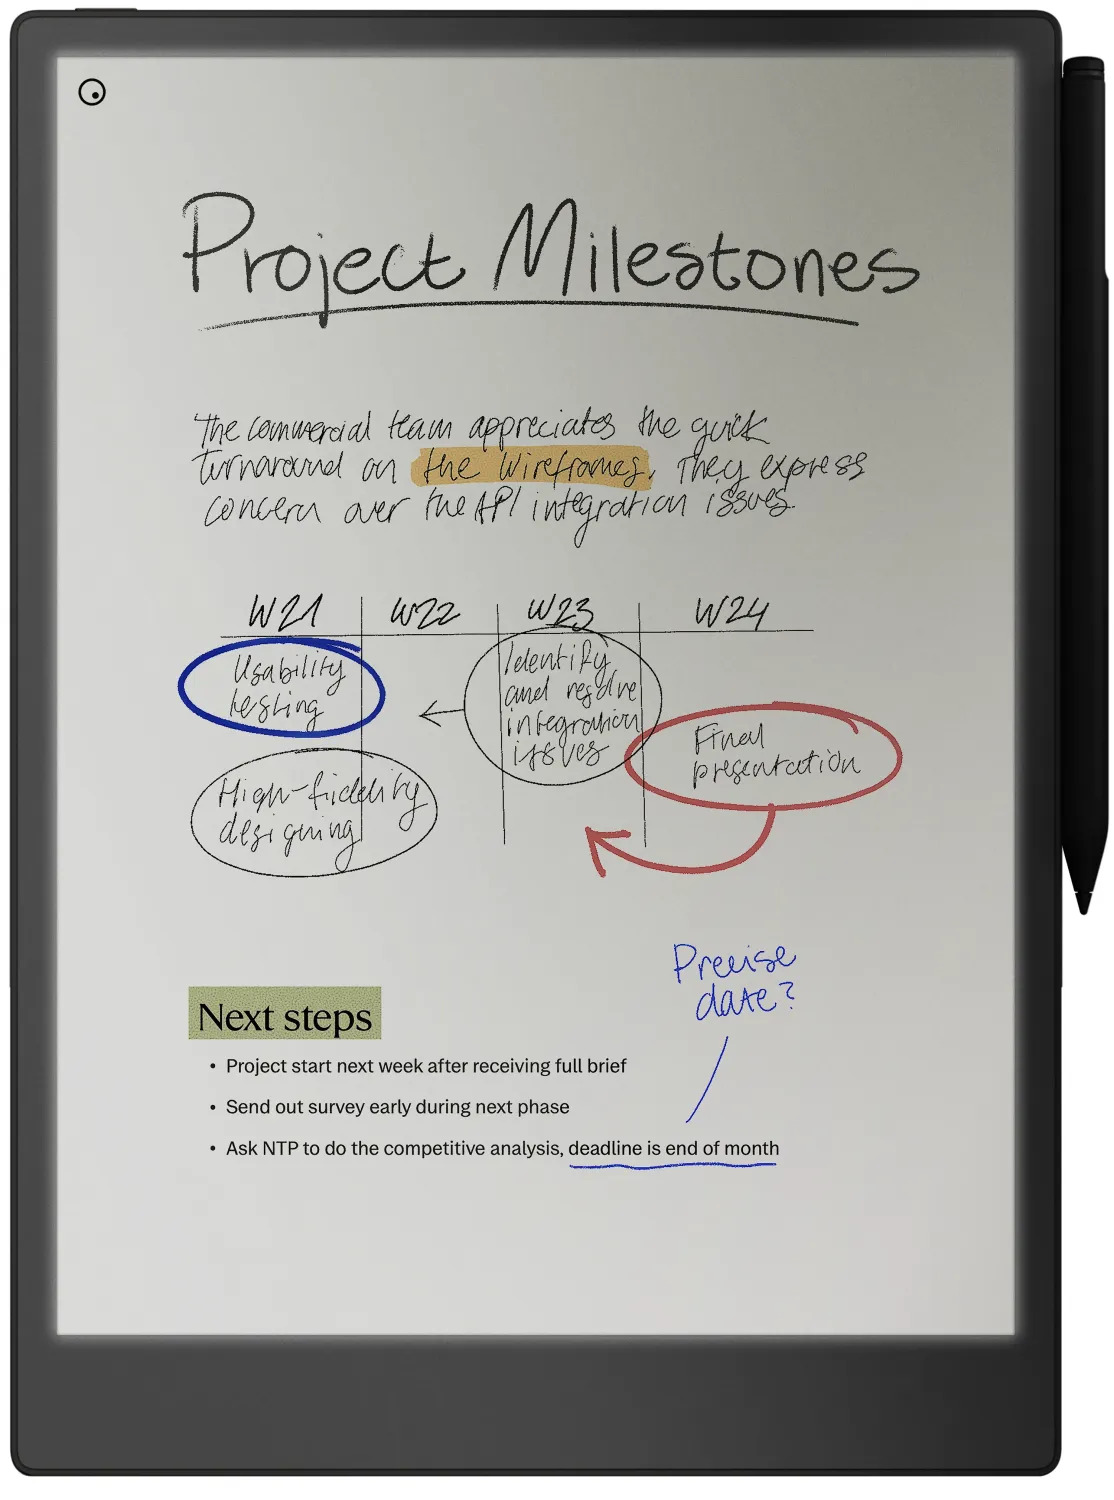 Project Milestones
The commercial team appreciates the quick
turnaround on the wireframes. They express
concern over the API integration issues.
W21 W22 W23 W24
Usability
testing
Identify
and resolve
integration
issues
Final
presentation
High-fidelity
designing
Precise
date?
Next steps
• Project start next week after receiving full brief
• Send out survey early during next phase
• Ask NTP to do the competitive analysis, deadline is end of month